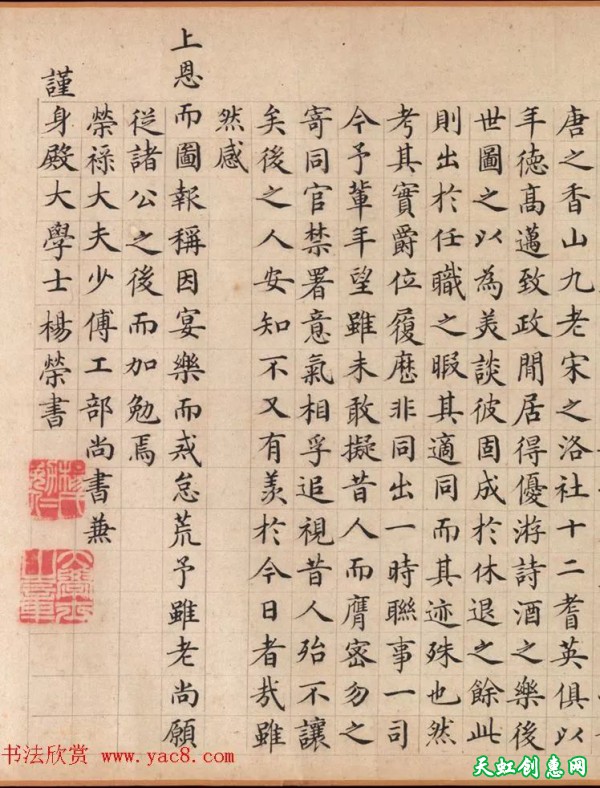 唐之香山九老宋之洛社十二耆英俱以
年德高邁致政閒居得優游詩酒之樂後
世圖之以為美談彼固成於休退之餘此
則出於任職之暇其適同而其迹殊也然
考其實爵位履歷非同出一時聯事一司
今予輩年望雖未敢擬昔人而膺密勿之
寄同官禁署意氣相孚追視昔人殆不讓
矣後之人安知不又有羨於今日者哉雖
然感
上恩而圖報稱因宴樂而戒怠荒予雖老尚願
從諸公之後而加勉焉
榮祿大夫少傅工部尚書兼
謹身殿大學士楊榮書
书法欣赏 www.yac8.com
天虹创惠网